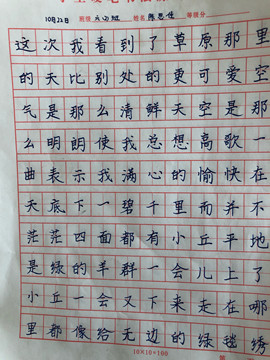 10月22日 班级 姓名 陈思佳 等级分
这次我看到了草原那里
的天比别处的更可爱空
气是那么清鲜天空是那
么明朗使我总想高歌一
曲表示我满心的愉快在
天底下一碧千里而并不
茫茫四面都有小丘平地
是绿的羊群一会儿上了
小丘一会又下来走在哪
里都像给无边的绿毯绣
10×10=100